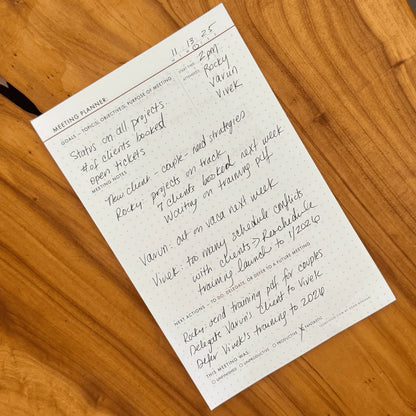 11.13.25
MEETING PLANNER
START TIME: 2pm
ATTENDEES: Rocky
Varun
Vivek
GOALS – TOPICS, OBJECTIVES, PURPOSE OF MEETING
Status on all projects.
# of clients booked
open tickets
MEETING NOTES
New client - couple - need strategies
Rocky: projects on track
7 clients booked next week
Waiting on training pdf
Varun: out on vaca next week
Vivek: too many schedule conflicts
with clients >> Reschedule
training launch to 1/2026
NEXT ACTIONS – TO DO, DELEGATE, OR DEFER TO A FUTURE MEETING
Rocky: send training pdf for couples
Delegate Varun's client to Vivek
Defer Vivek's training to 2026
THIS MEETING WAS:
UNPLANNED UNPRODUCTIVE PRODUCTIVE FANTASTIC